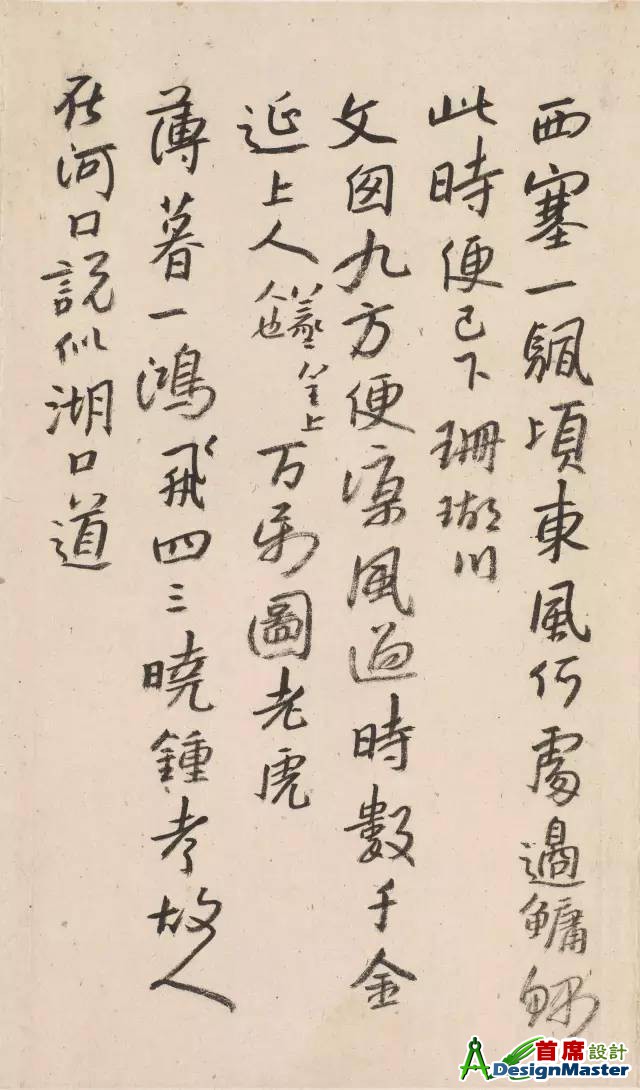 西塞一颿頃東風何處過鱅
此時便已下珊瑚川
文囱九方便涼風過時數千金
延上人
人也
万
圖老虎
薄暮一鴻飛四三曉鍾孝故人
在河口說似湖口道
首席設計
DesignMaster